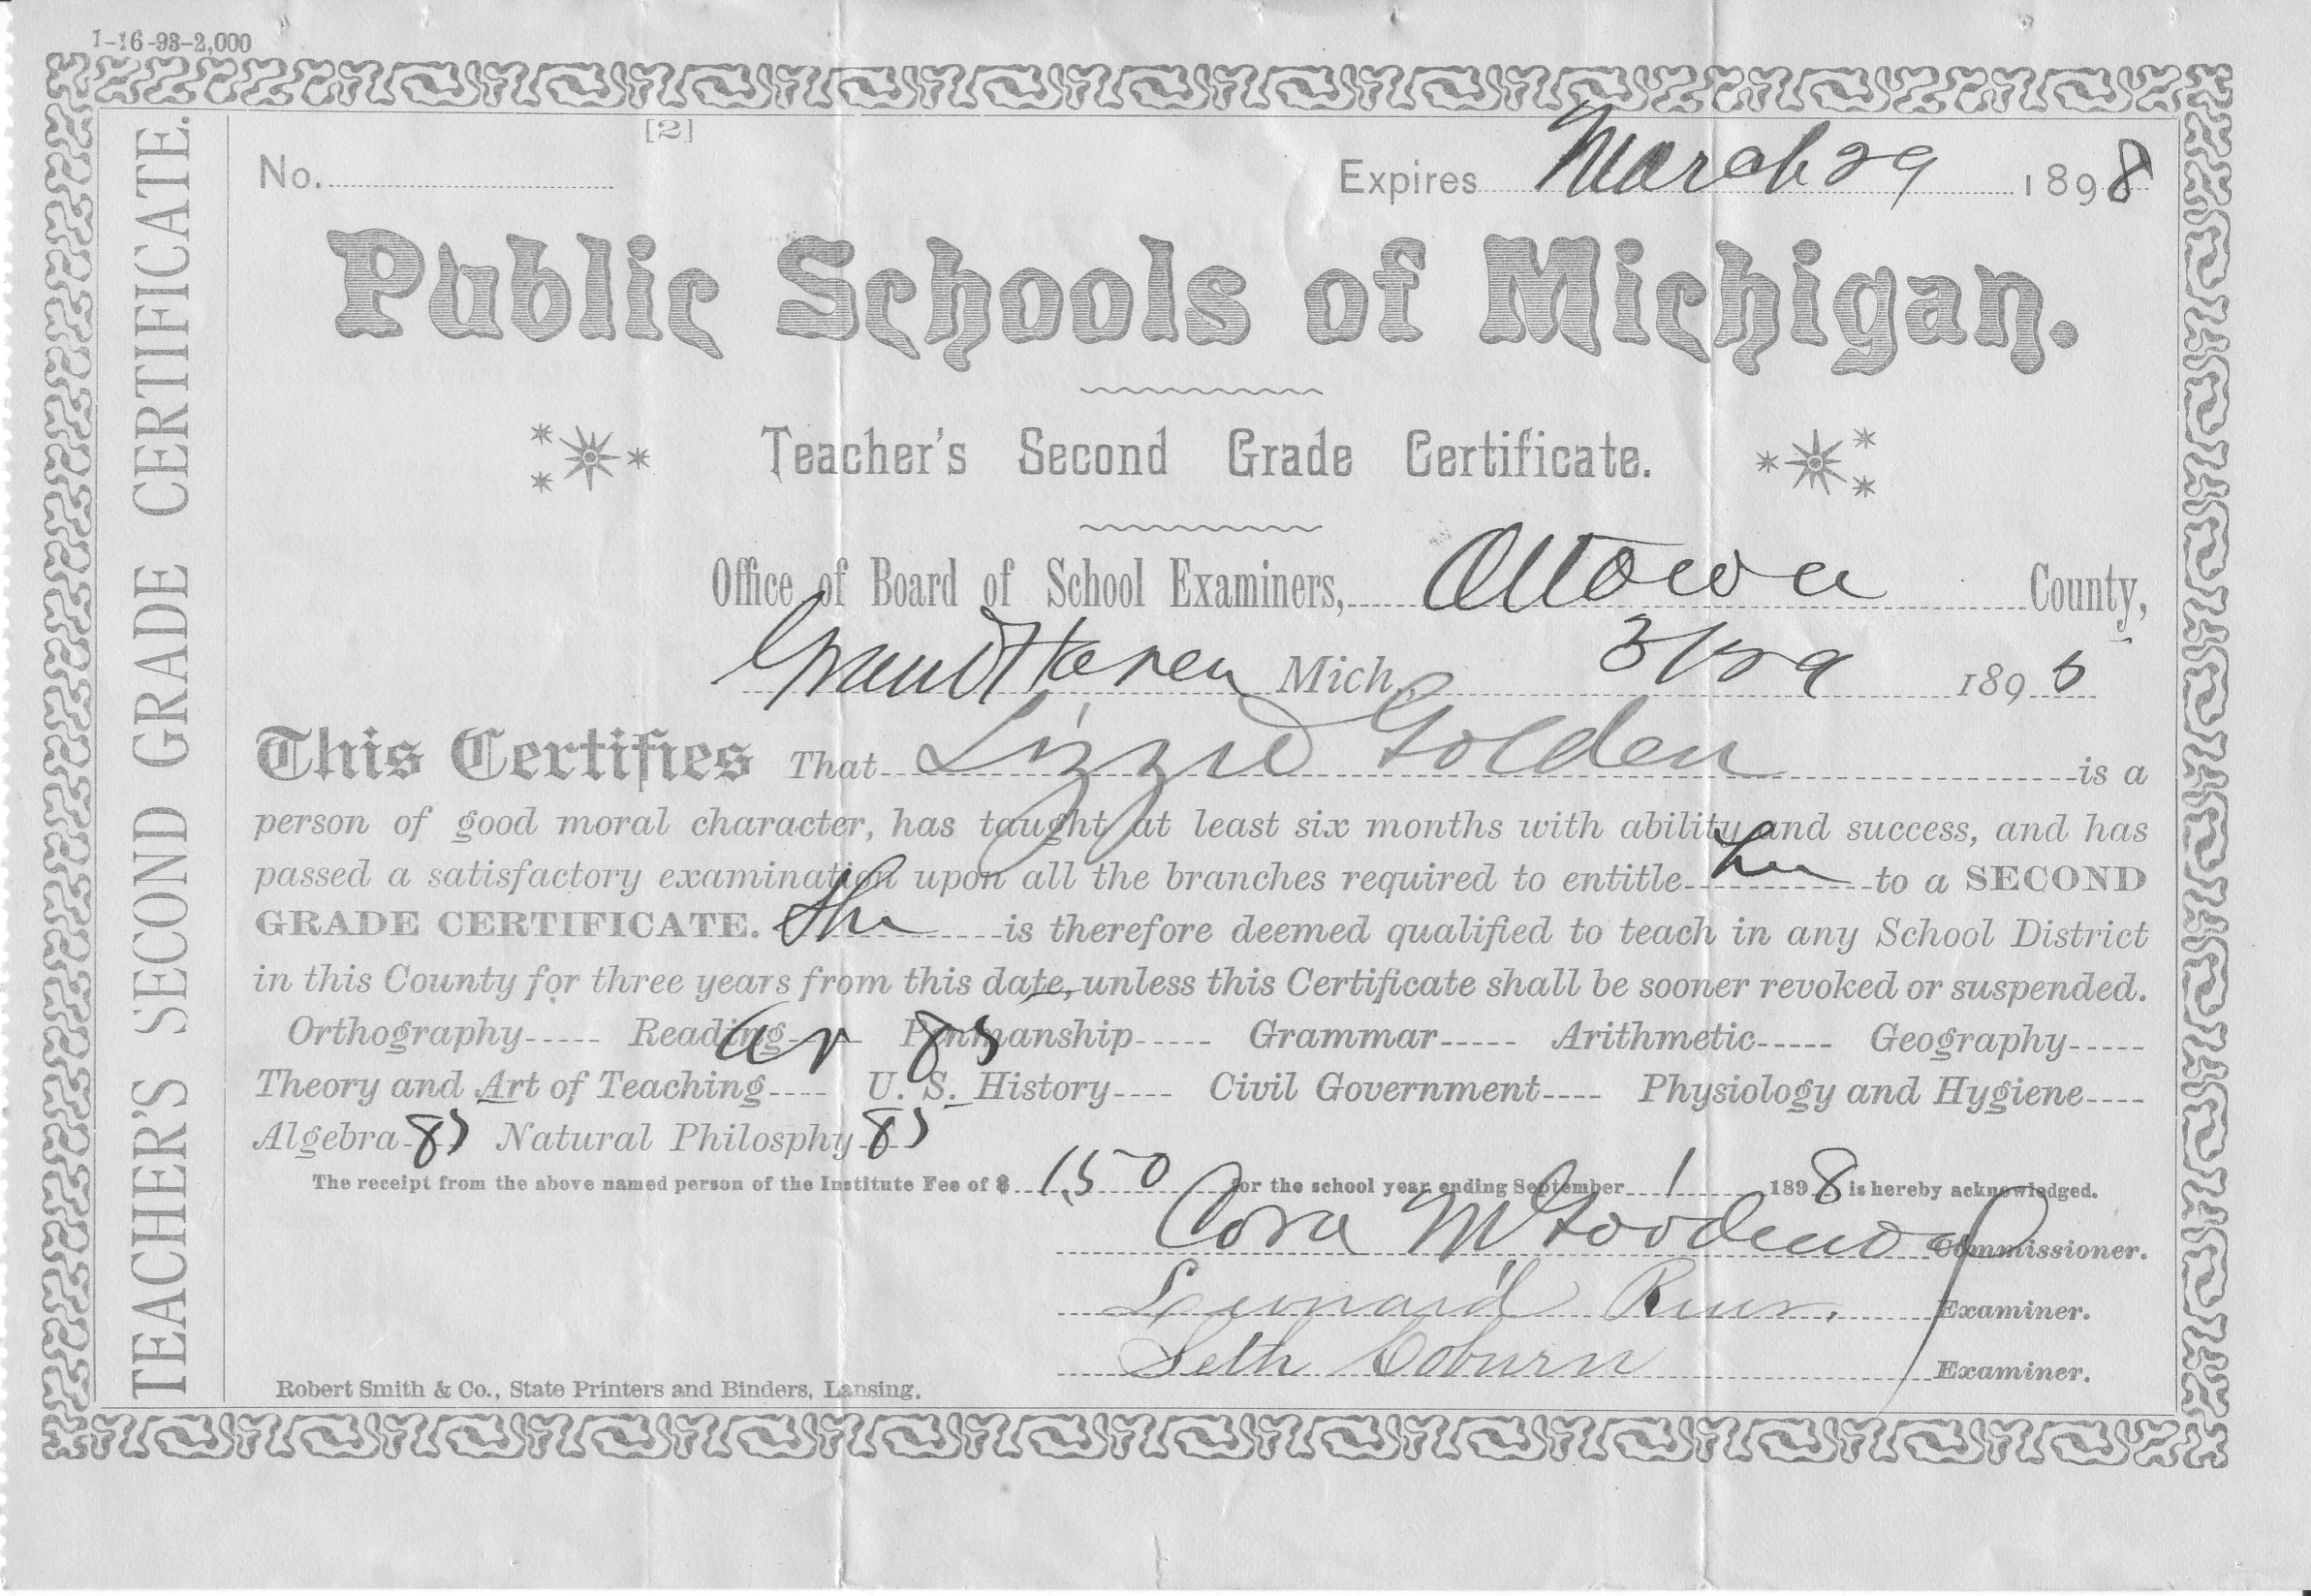 1-16-93-2,000
TEACHER'S SECOND GRADE CERTIFICATE.
[2]
No. Expires March 29 1898
Public Schools of Michigan.
Teacher's Second Grade Certificate.
Office of Board of School Examiners, Ottowa County,
Grand Haven Mich., 3/29 1895
This Certifies That Lizzie Golden is a
person of good moral character, has taught at least six months with ability and success, and has
passed a satisfactory examination upon all the branches required to entitle her to a SECOND
GRADE CERTIFICATE. She is therefore deemed qualified to teach in any School District
in this County for three years from this date, unless this Certificate shall be sooner revoked or suspended.
Orthography Reading Penmanship Grammar Arithmetic Geography
av 85
Theory and Art of Teaching U. S. History Civil Government Physiology and Hygiene
Algebra 85 Natural Philosphy 85
The receipt from the above named person of the Institute Fee of $ 1.50 for the school year ending September 1 1898 is hereby acknowledged.
Cora M Goodenow Commissioner.
Leonard Examiner.
Seth Coburn Examiner.
Robert Smith & Co., State Printers and Binders, Lansing.